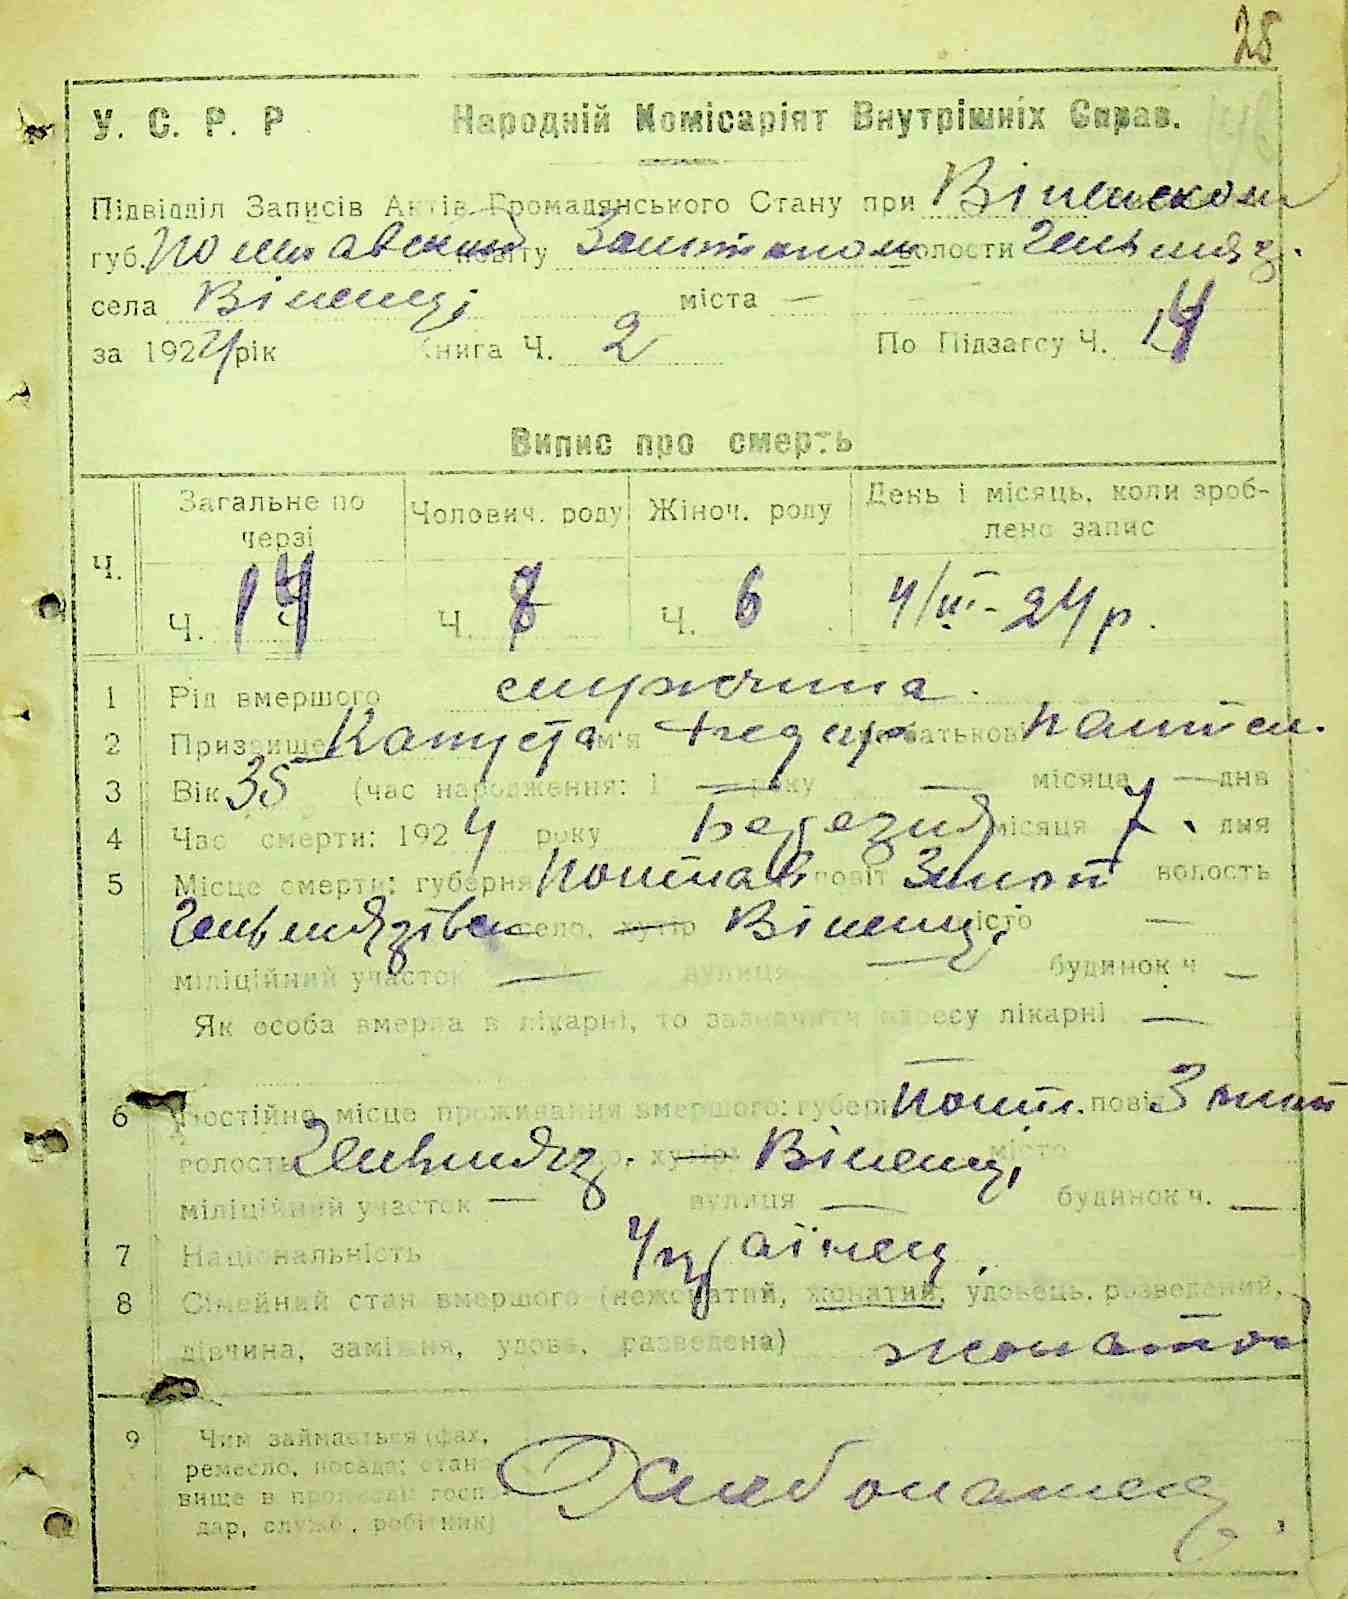 28
У. С. Р. Р. Народній Комісаріят Внутрішніх Справ.
Підвідділ Записів Актів Громадянського Стану при Віненском
губ. Полтавский повіту Золотонош волости Гельмяз.
села Віненці міста —
за 1924 рік Книга Ч. 2 По Підзагсу Ч. 14
Випис про смерть
Ч. Загальне по черзі Чолович. роду Жіноч. роду День і місяць, коли зроб-
лено запис
Ч. 14 Ч. 8 Ч. 6 4/III - 24 р.
1 Рід вмершого мужчина.
2 Призвище Капуста Ім'я Федор по батькові Пантел.
3 Вік 35 (час народження: 1 — року — місяца — дна
4 Час смерти: 1924 року Березня місяця 7 дня
5 Місце смерти: губерня Полтав повіт Золот волость
Гельмязівск село, хутір Віненці місто —
міліційний участок — вулиця — будинок ч —
Як особа вмерла в лікарні, то зазначити адресу лікарні —
—
6 Постійне місце проживання вмершого: губерн Полт. повіт Золот
волость Гельмяз. хутір — Віненці місто
міліційний участок — вулиця — будинок ч. —
7 Національність Украінец.
8 Сімейний стан вмершого (нежонатий, жонатий, удовець, розведений,
дівчина, заміжня, удова, разведена) жонатой
9 Чим займається (фах,
ремесло, посада; стано-
вище в промислі госпо-
дар, служб., робітник) Хлебопашец.